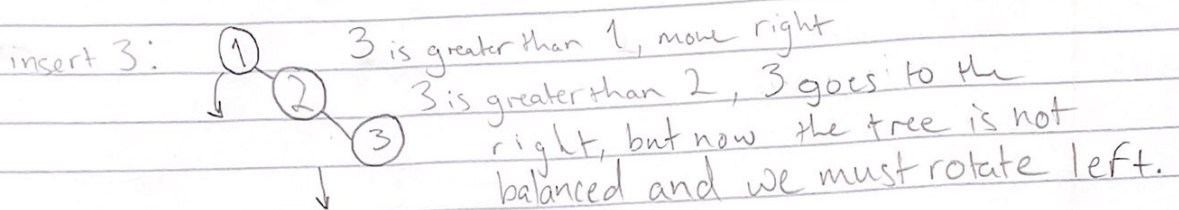 insert 3: 1 3 is greater than 1, move right
2 3 is greater than 2, 3 goes to the
3 right, but now the tree is not
balanced and we must rotate left.